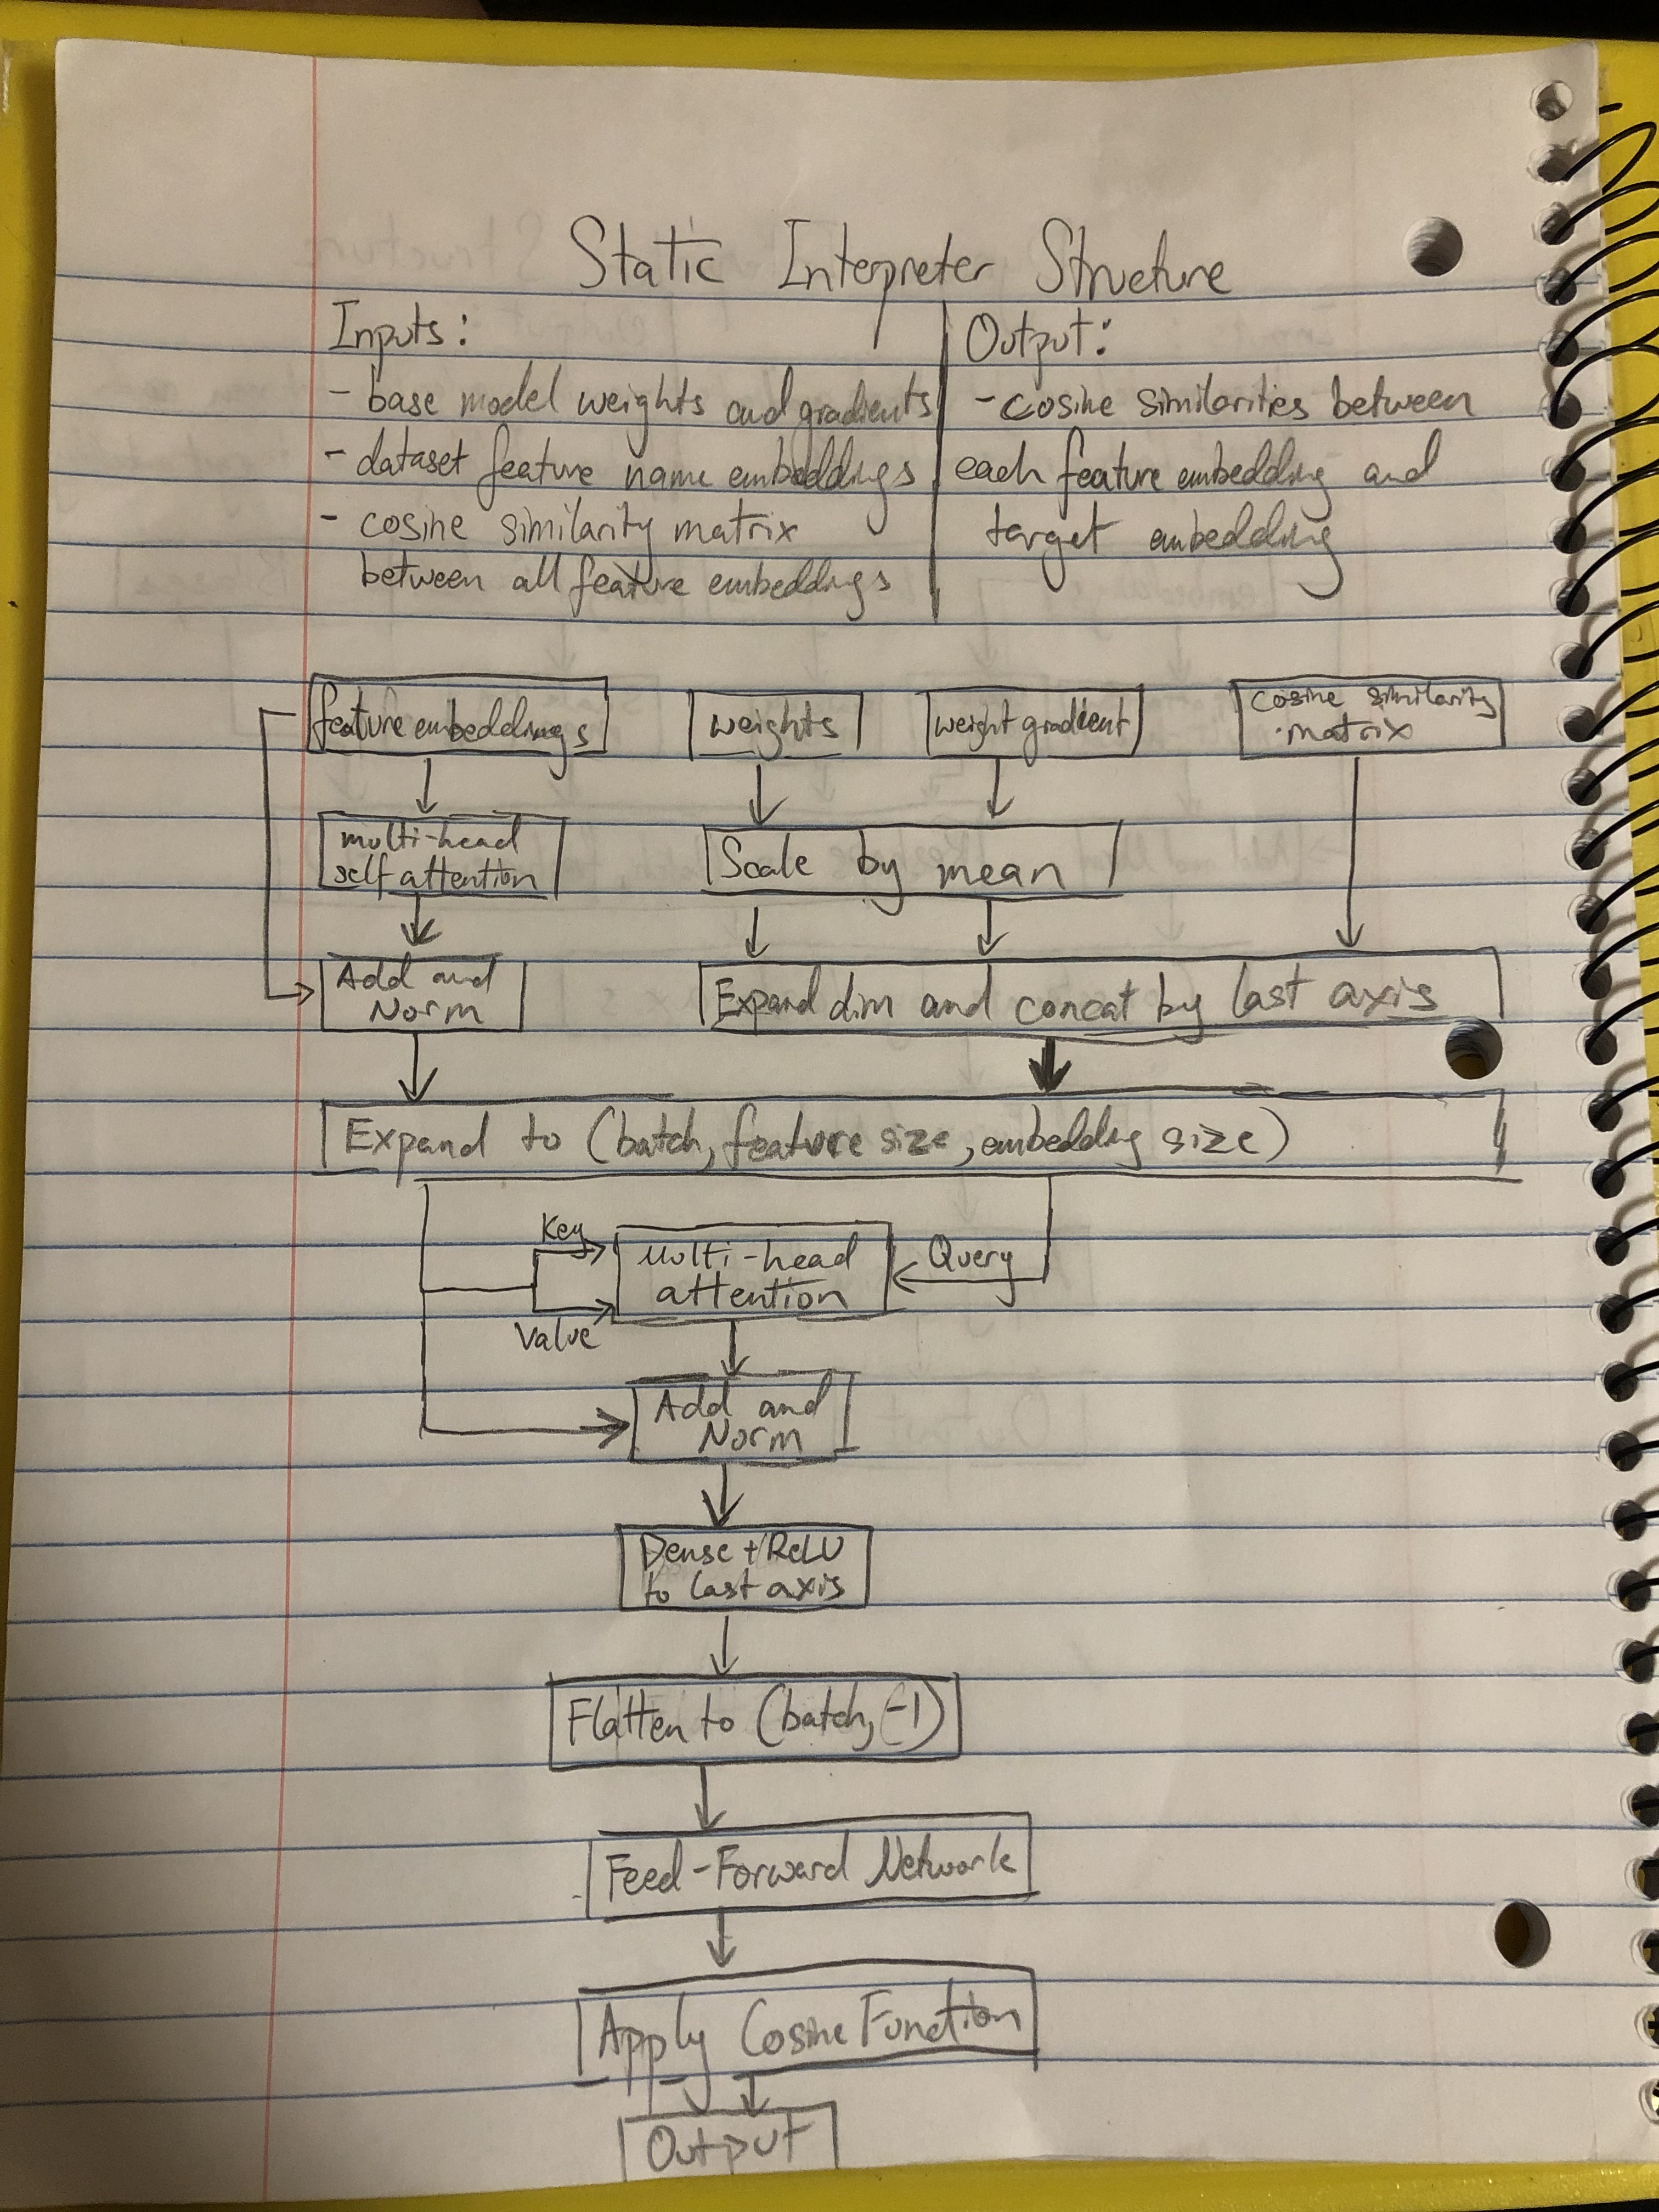 Static Interpreter Structure
Inputs:
- base model weights and gradients
- dataset feature name embeddings
- cosine similarity matrix
between all feature embeddings
Output:
- cosine similarities between
each feature embedding and
target embedding
feature embeddings
weights
weight gradient
cosine similarity
matrix
multi-head
self attention
Scale by mean
Add and
Norm
Expand dim and concat by last axis
Expand to (batch, feature size, embedding size)
Key
Multi-head
attention
Query
Value
Add and
Norm
Dense + ReLU
to last axis
Flatten to (batch, -1)
Feed-Forward Network
Apply Cosine Function
Output